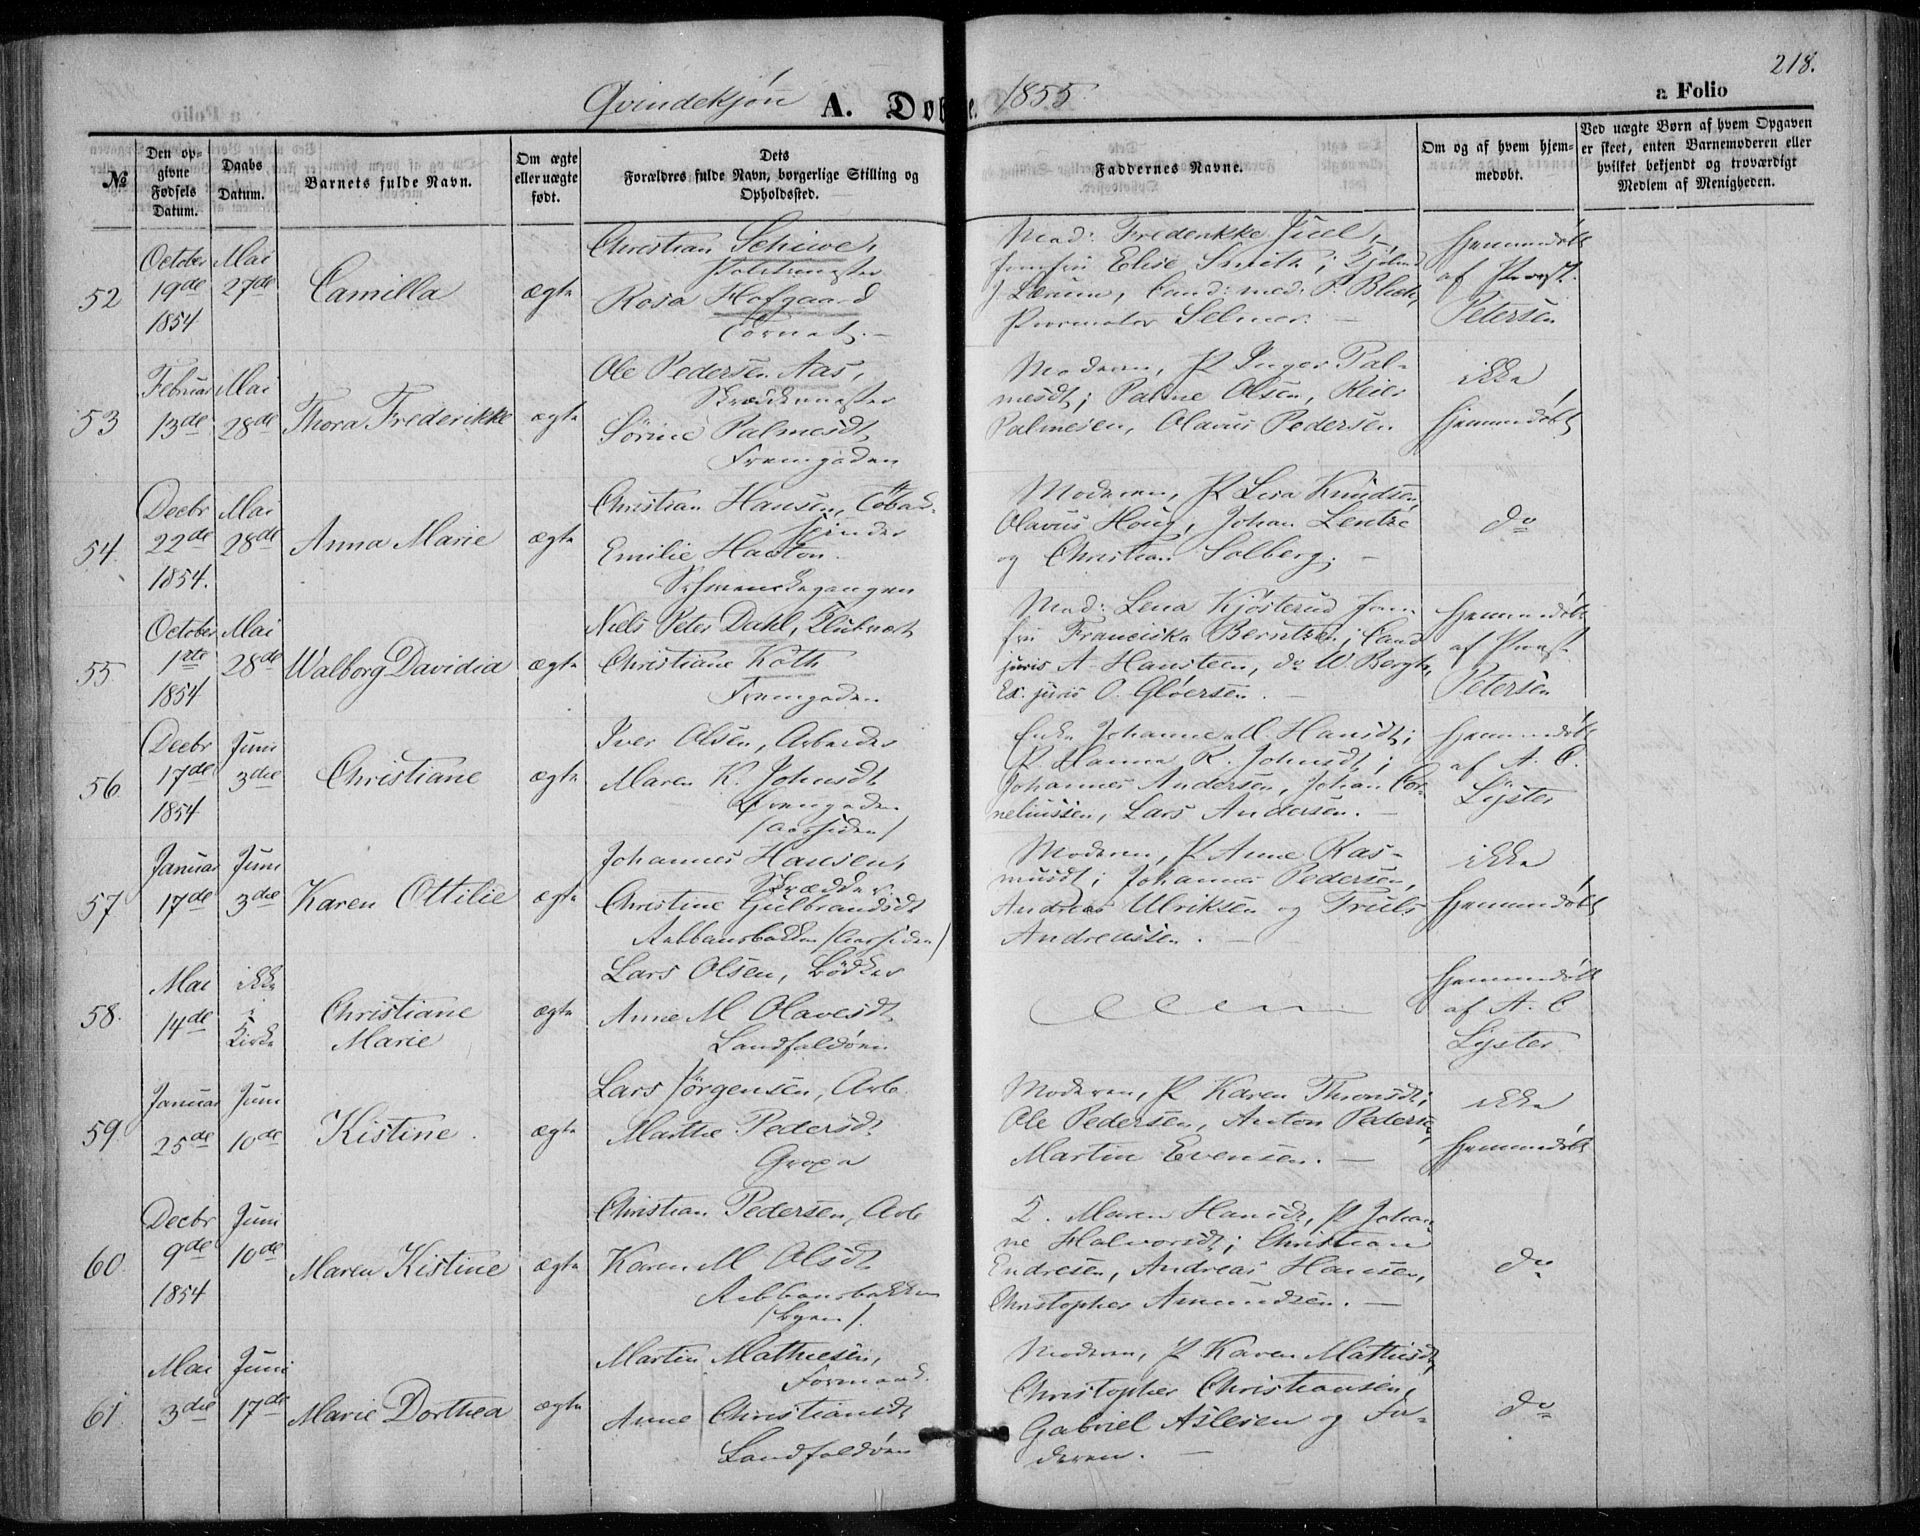 218.
Qvindekjøn A. Døbte. 1855. a Folio
№
Den opgivne Fødsels Datum.
Daabs Datum.
Barnets fulde Navn.
Om ægte eller uægte født.
Dets Forældres fulde Navn, borgerlige Stilling og Opholdssted.
Faddernes Navne.
Om og af hvem hjemmedøbt.
Ved uægte Børn af hvem Opgaven er skeet, enten Barnemoderen eller hvilket bekjendt og troværdigt Medlem af Menigheden.
52
October 19de 1854
Mai 27de
Camilla
ægte
Christian Schiwe,
Politimester
Rosa Hofgaard
Tornet.
Mad: Frederikke Juel,
Jomfru Elise Smith;
J. Lærum, Cand: med: P. Blich,
Procurator Selmer.
hjemmedøbt
af Provst
Petersen
53
Februar 13de
Mai 28de
Thora Frederikke
ægte
Ole Pedersen Aas,
Skræddermester
Sørine Palmesdt
Fremgaden
Moderen, P Inger Pal-
mesdt; Palme Olsen, Reier
Palmesen, Olavus Pedersen
ikke
hjemmedøbt
54.
Decbr 22de 1854.
Mai 28de
Anna Marie
ægte
Christian Hansen, Tobak-
spinder
Emilie Haston.
Schwenckegangen
Moderen, P Lisa Knudsen,
Olavus Houg, Johan Lentze
og Christian Solberg.
do
55.
October 1ste 1854
Mai 28de
Walborg Davidia
ægte
Niels Peter Dahl, Klubvært
Christiane Koth
Fremgaden
Mad: Lena Kjøsterud Jom-
fru Franciska Berntzen; Cand
juris A. Hansteen, do W Bergh,
Ex. juris O. Gløersen.
hjemmedøbt
af Provst
Petersen
56.
Decbr 17de 1854
Juni 3die
Christiane
ægte
Iver Olsen, Arbeider
Maren K. Johnsdt
Fremgaden
/Aassiden/
Enke Johanne M. Hansdt;
P. Hanna R. Johnsdt;
Johannes Andersen, Johan Cor-
neliussen, Lars Andersen.
hjemmedøbt
af A. C.
Lyster
57
Januar 17de
Juni 3die
Karen Ottilie
ægte
Johannes Hansen,
Skrædder.
Christine Gulbrandsdt
Rabbansbakken /Aassiden/
Moderen, P Anne Ras-
musdt; Johannes Pedersen,
Andreas Ulriksen og Truls
Andreassen.
ikke
hjemmedøbt
58.
Mai 14de
ikke i Kirke
Christiane
Marie
ægte
Lars Olsen, Bødker
Anne M Olavesdt
Landfaldøen
hjemmedøbt
af A. C
Lyster
59.
Januar 25de
Juni 10de
Kistine.
ægte
Lars Jørgensen, Arb.
Marthe Pedersdt
Gropa
Moderen, P Karen Thronsdt;
Ole Pedersen, Anton Pedersen,
Martin Evensen.
ikke
hjemmedøbt
60.
Decbr 9de 1854
Juni 10de
Maren Kistine
ægte
Christian Pedersen, Arb
Karen M Olsdt
Rabbansbakken
/Byen/.
Maren Hansdt, P Johan-
ne Halvorsdt; Christian
Endresen, Andreas Hansen,
Christopher Amundsen.
do
61.
Mai 3die
Juni 17de
Marie Dorthea
ægte
Martin Mathiesen,
Formand.
Anne Christiansdt
Landfaldøen
Moderen, P Karen Mathisdt,
Christopher Christiansen,
Gabriel Aslesen og Fa-
deren.
do